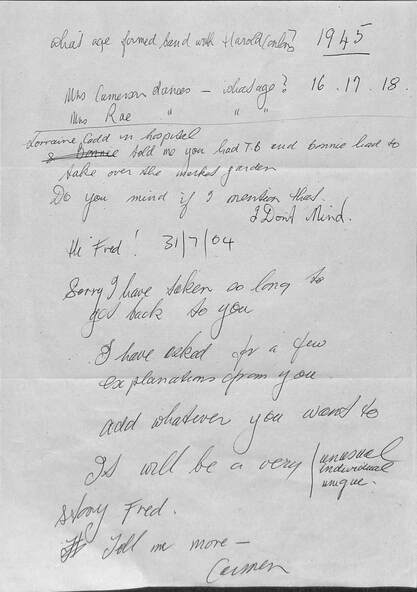 What's age formed band with Harold Conlon? 1945
Mrs Cameron dances – what age? 16.17.18.
Mrs Rae " " "
Lorraine Cadd in hospital
& Bonnie told me you had T.B and Bonnie had to
take over the market garden
Do you mind if I mention this.
I Don't Mind.
Hi Fred! 31/7/04
Sorry I have taken so long to
get back to you
I have asked for a few
explanations from you
add whatever you want to
It will be a very unusual
individual
unique.
story Fred.
Tell me more –
Carmen